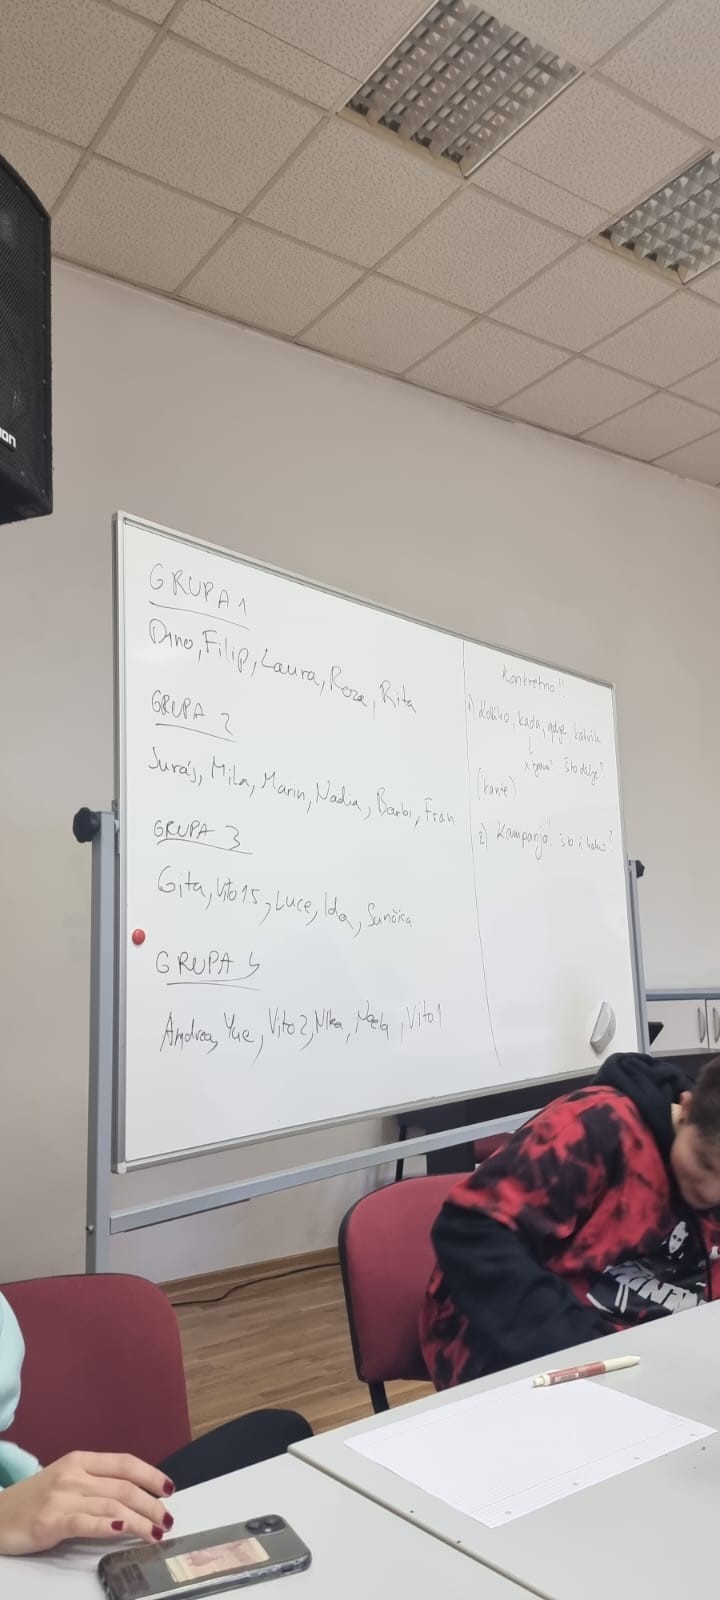 GRUPA 1
Dino, Filip, Laura, Roza, Rita
GRUPA 2
Juraj, Mila, Marin, Nadia, Barbi, Fran
GRUPA 3
Gita, Vito 1.5, Luce, Ida, Sunčica
GRUPA 4
Andrea, Yue, Vito 2, Nika, Vito 1
Konkretno!!
1) Koliko, kada, gdje, kakvih
što dalje?
2) Kampanja! što i kako?